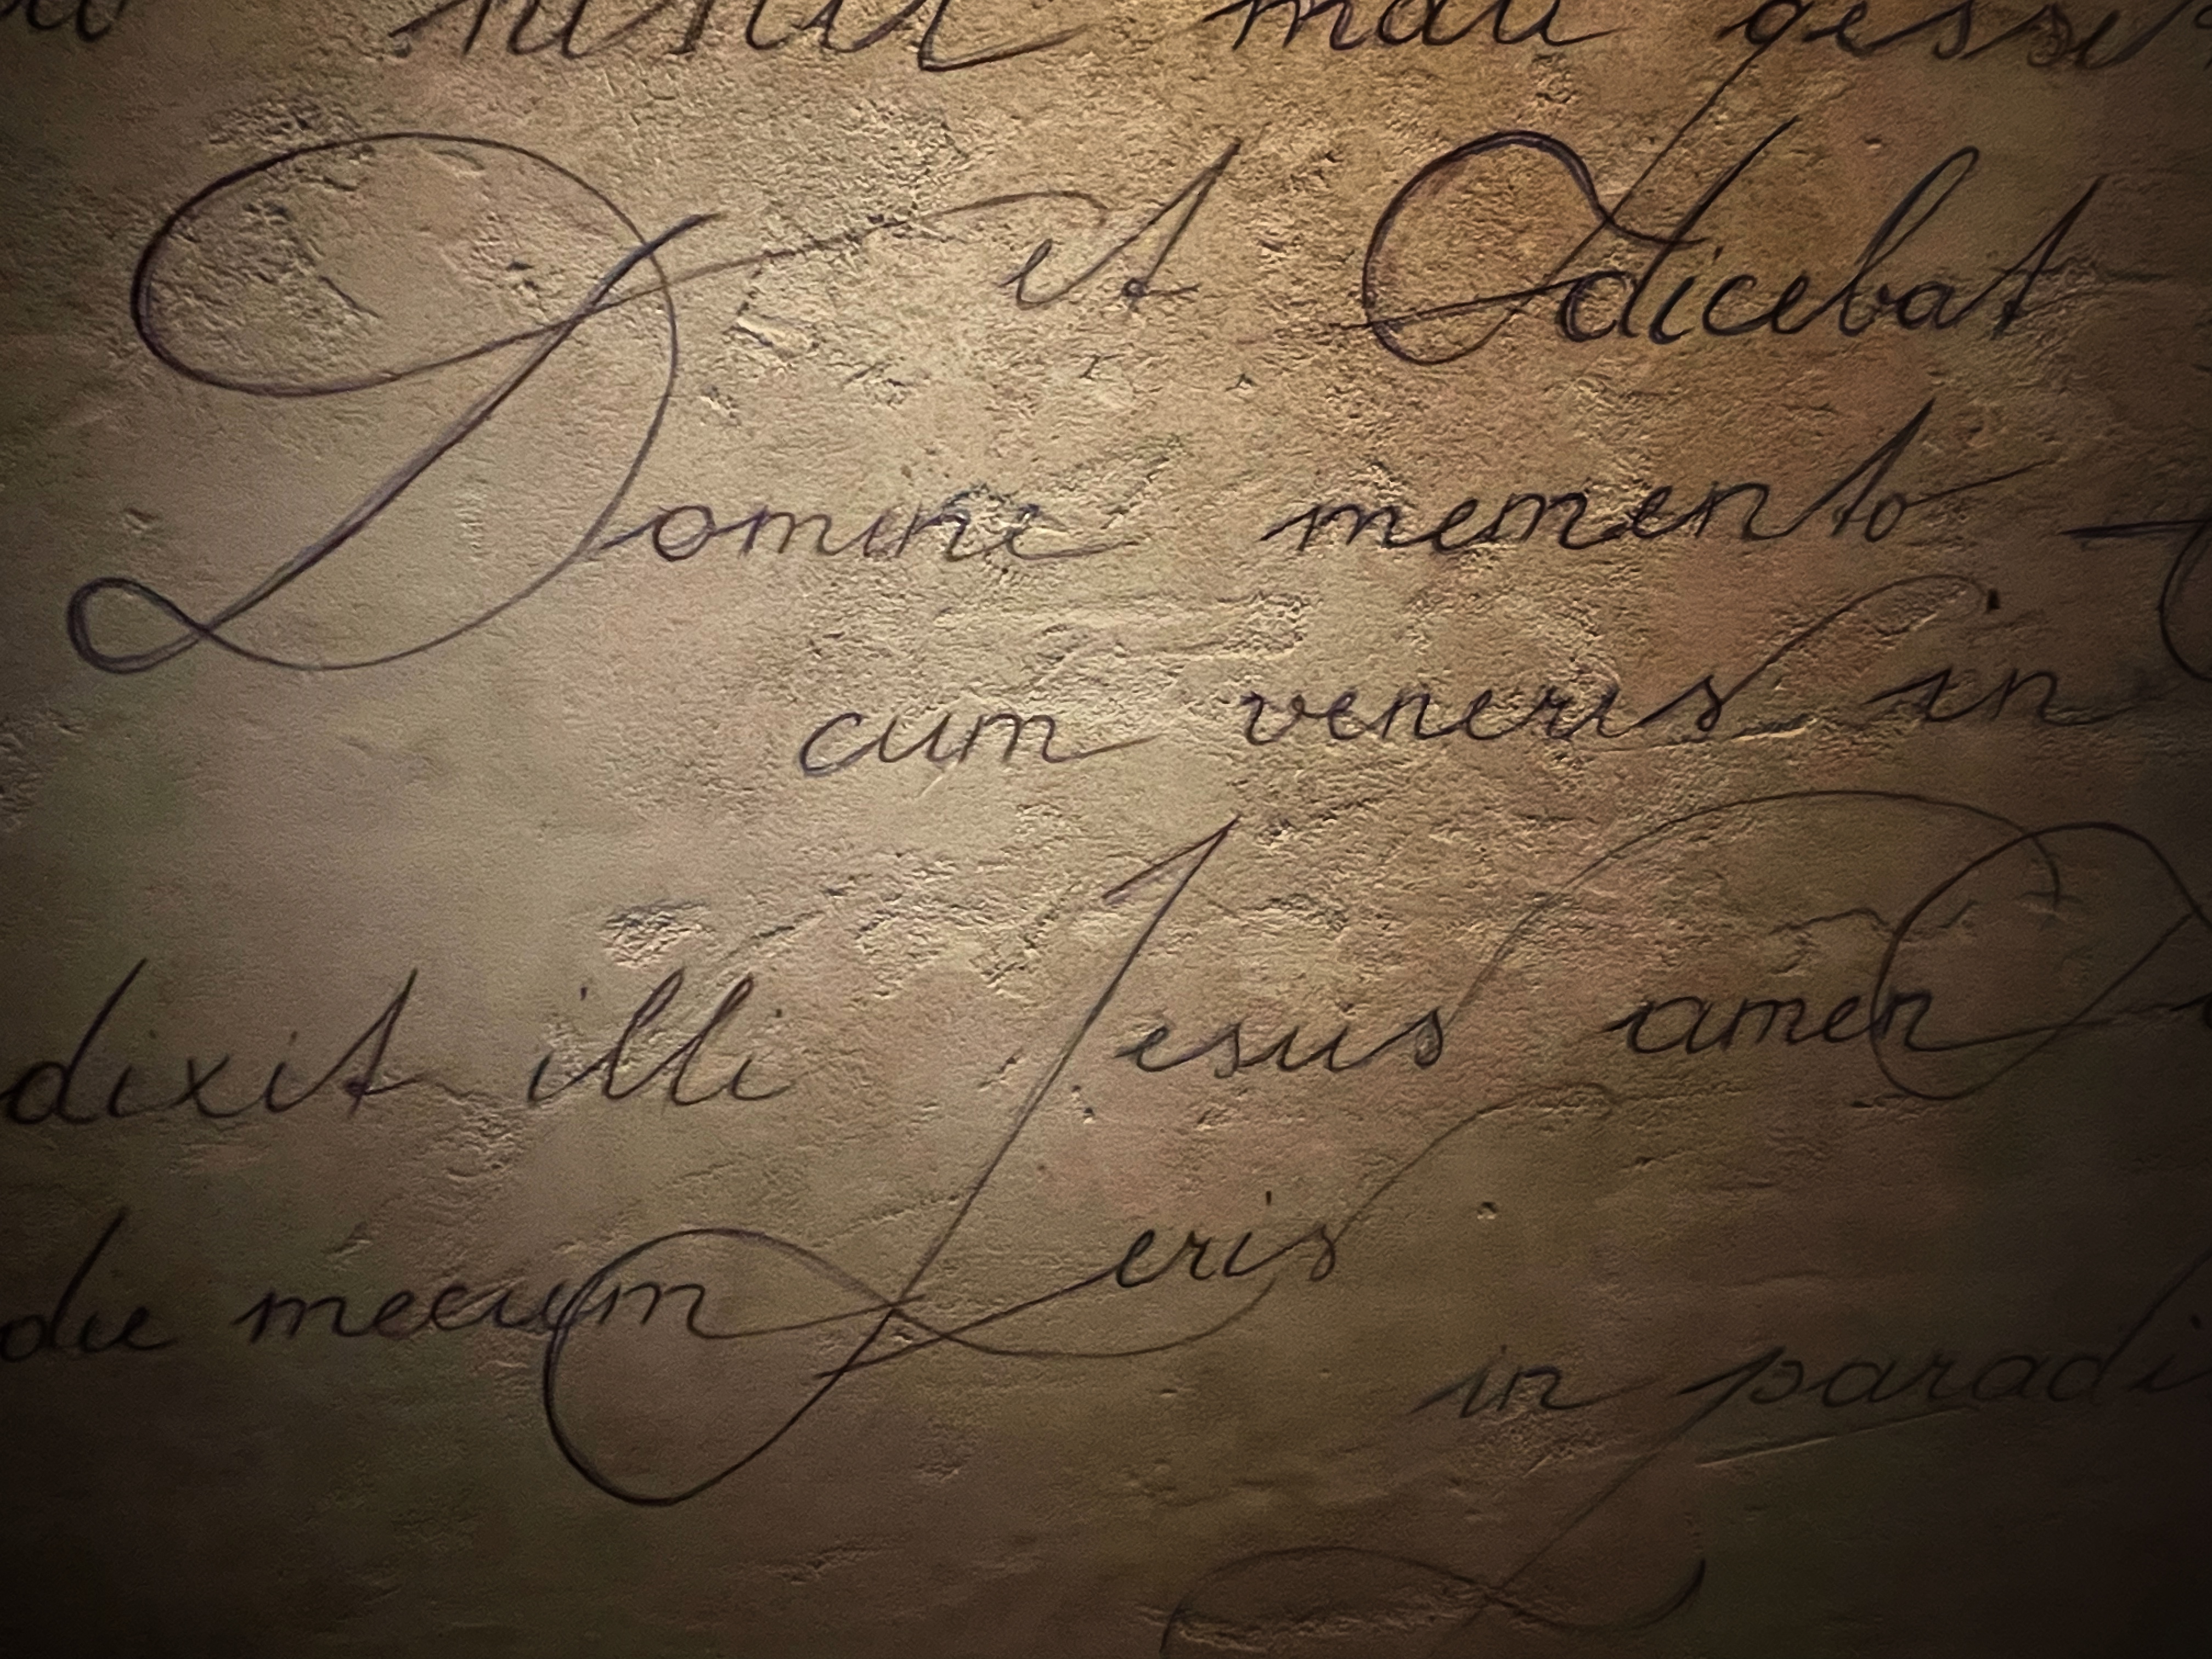 nihil mali gess
et dicebat
Domine memento
cum veneris in
dixit illi Jesus amen
die mecum eris
in paradi